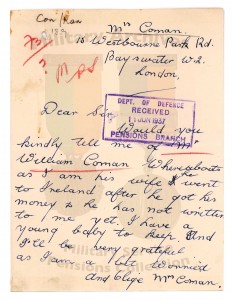 Con / Ran
Mrs Coman.
16 Westbourne Park Rd.
Bayswater W.2.
London,
Dear Sir,
DEPT. OF DEFENCE
RECEIVED
1 JUN 1937
PENSIONS BRANCH
Would you
kindly tell me of Mr
William Coman Whereabouts
as I am his wife & went
to Ireland after he got his
money & he has not written
to me yet. I have a
young baby to keep. and
I'll be very grateful
as I am a bit worried
and Oblige Mrs Coman.